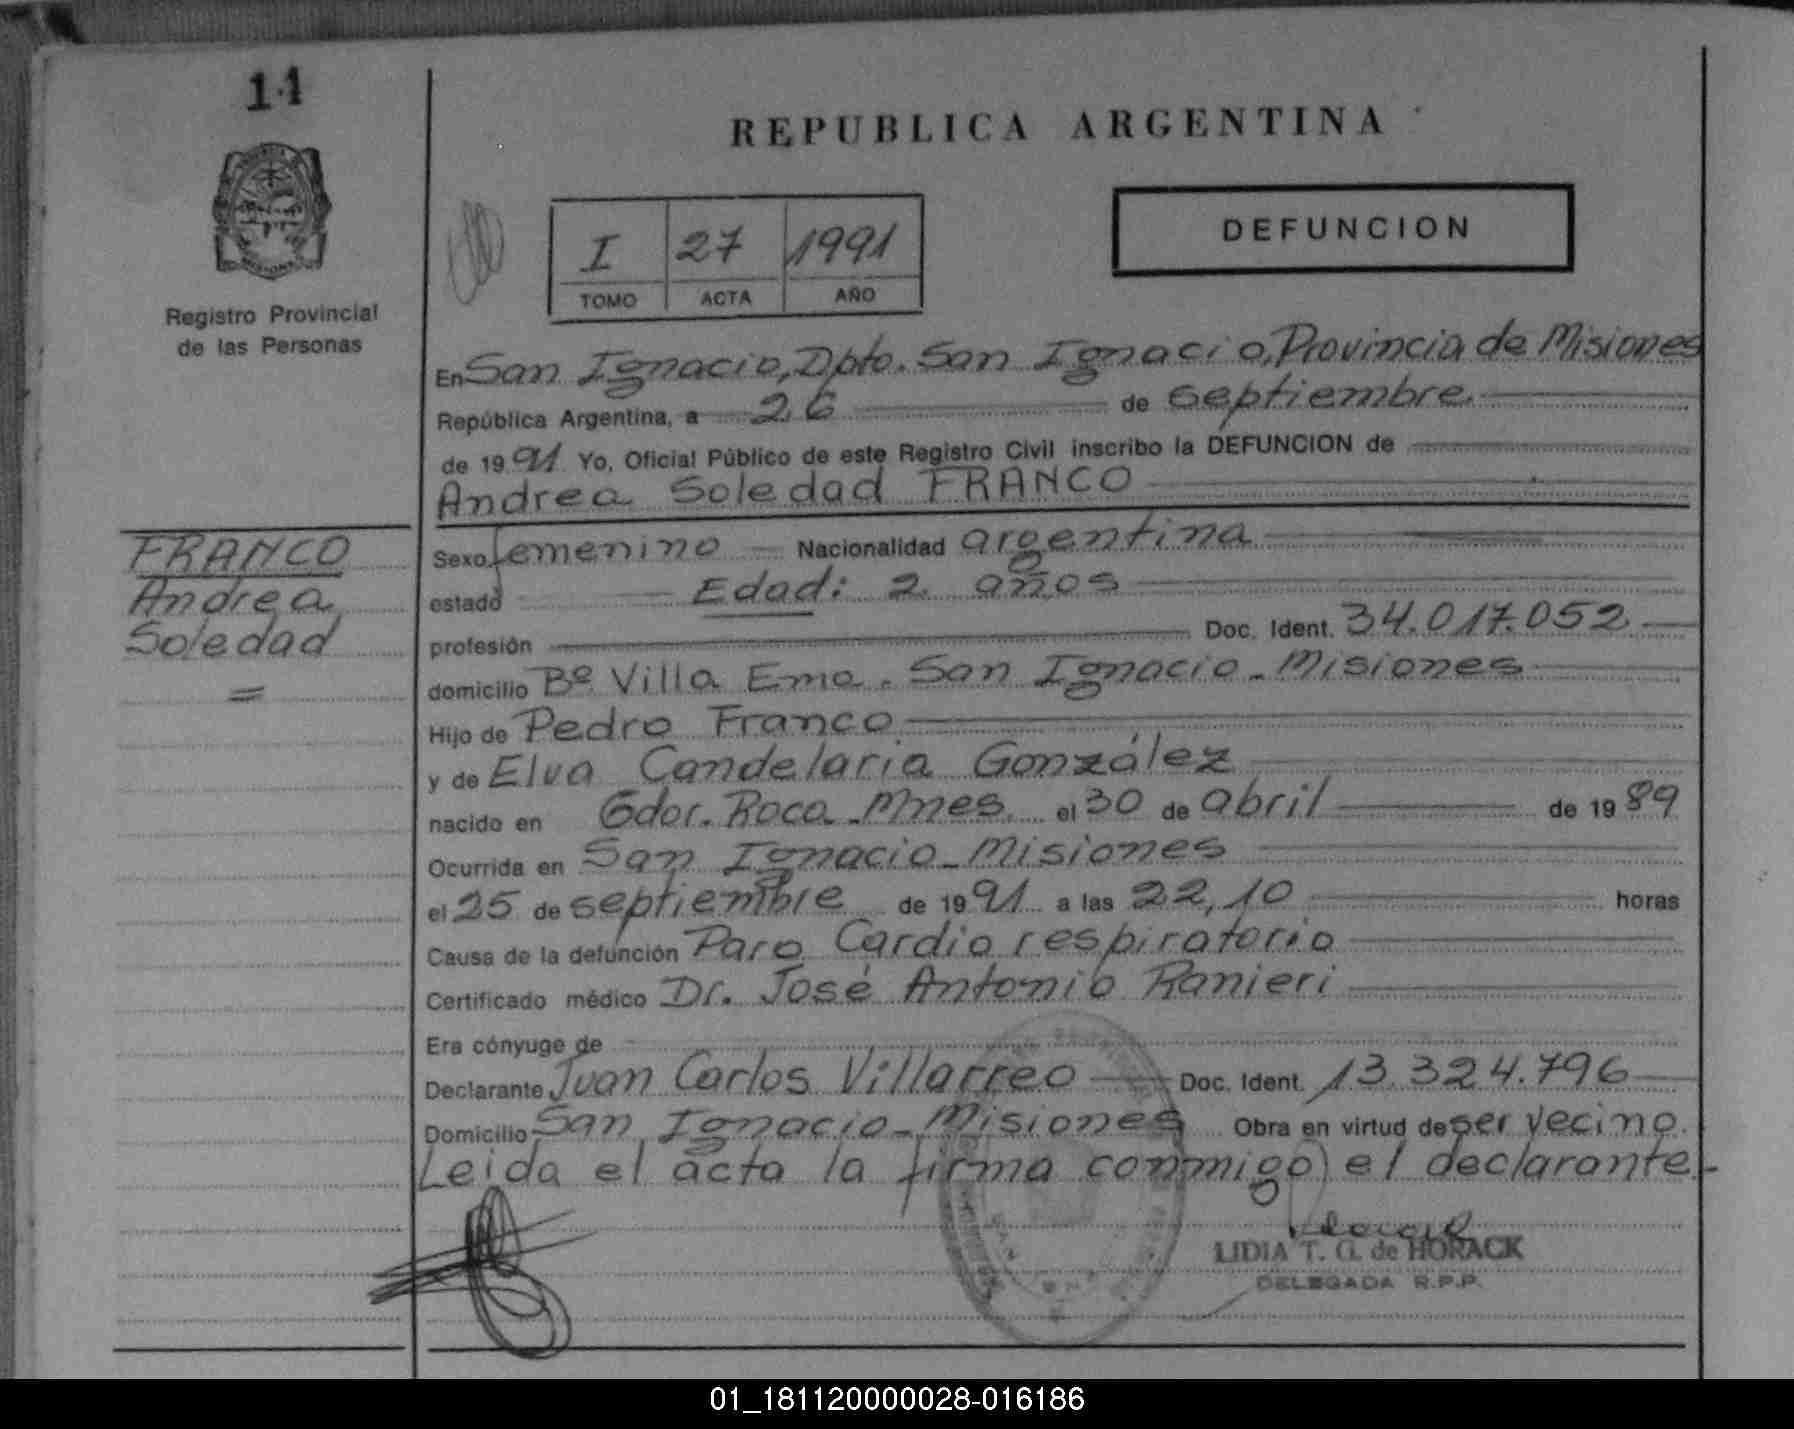 14
REPUBLICA ARGENTINA
DEFUNCION
I 27 1991
TOMO ACTA AÑO
Registro Provincial
de las Personas
En San Ignacio, Dpto. San Ignacio, Provincia de Misiones
República Argentina, a 26 de septiembre.
de 1991 Yo, Oficial Público de este Registro Civil inscribo la DEFUNCION de
Andrea Soledad FRANCO
FRANCO
Andrea
Soledad
=
Sexo femenino Nacionalidad argentina
estado Edad: 2 años
profesión Doc. Ident. 34.017.052
domicilio Bº Villa Ema. San Ignacio - Misiones
Hijo de Pedro Franco
y de Elva Candelaria González
nacido en Gdor. Roca - Mnes. el 30 de abril de 1989
Ocurrida en San Ignacio - Misiones
el 25 de septiembre de 1991 a las 22,10 horas
Causa de la defunción Paro Cardio respiratorio
Certificado médico Dr. José Antonio Ranieri
Era cónyuge de
Declarante Juan Carlos Villarreo Doc. Ident. 13.324.796
Domicilio San Ignacio - Misiones Obra en virtud de ser vecino.
Leida el acta la firma conmigo el declarante.-
LIDIA T. G. de HORACK
DELEGADA R.P.P.
01_181120000028-016186